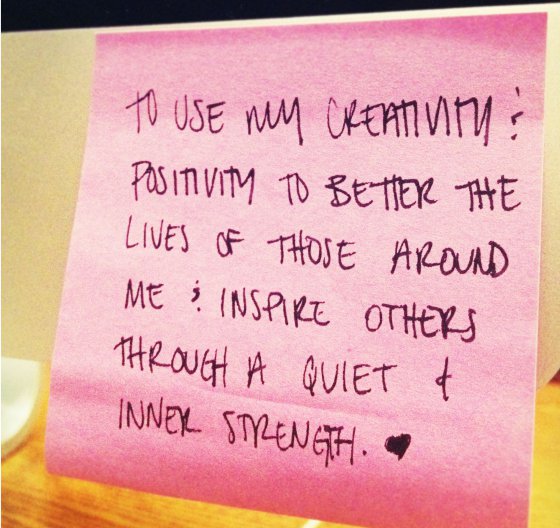 TO USE MY CREATIVITY &
POSITIVITY TO BETTER THE
LIVES OF THOSE AROUND
ME & INSPIRE OTHERS
THROUGH A QUIET &
INNER STRENGTH. ♥